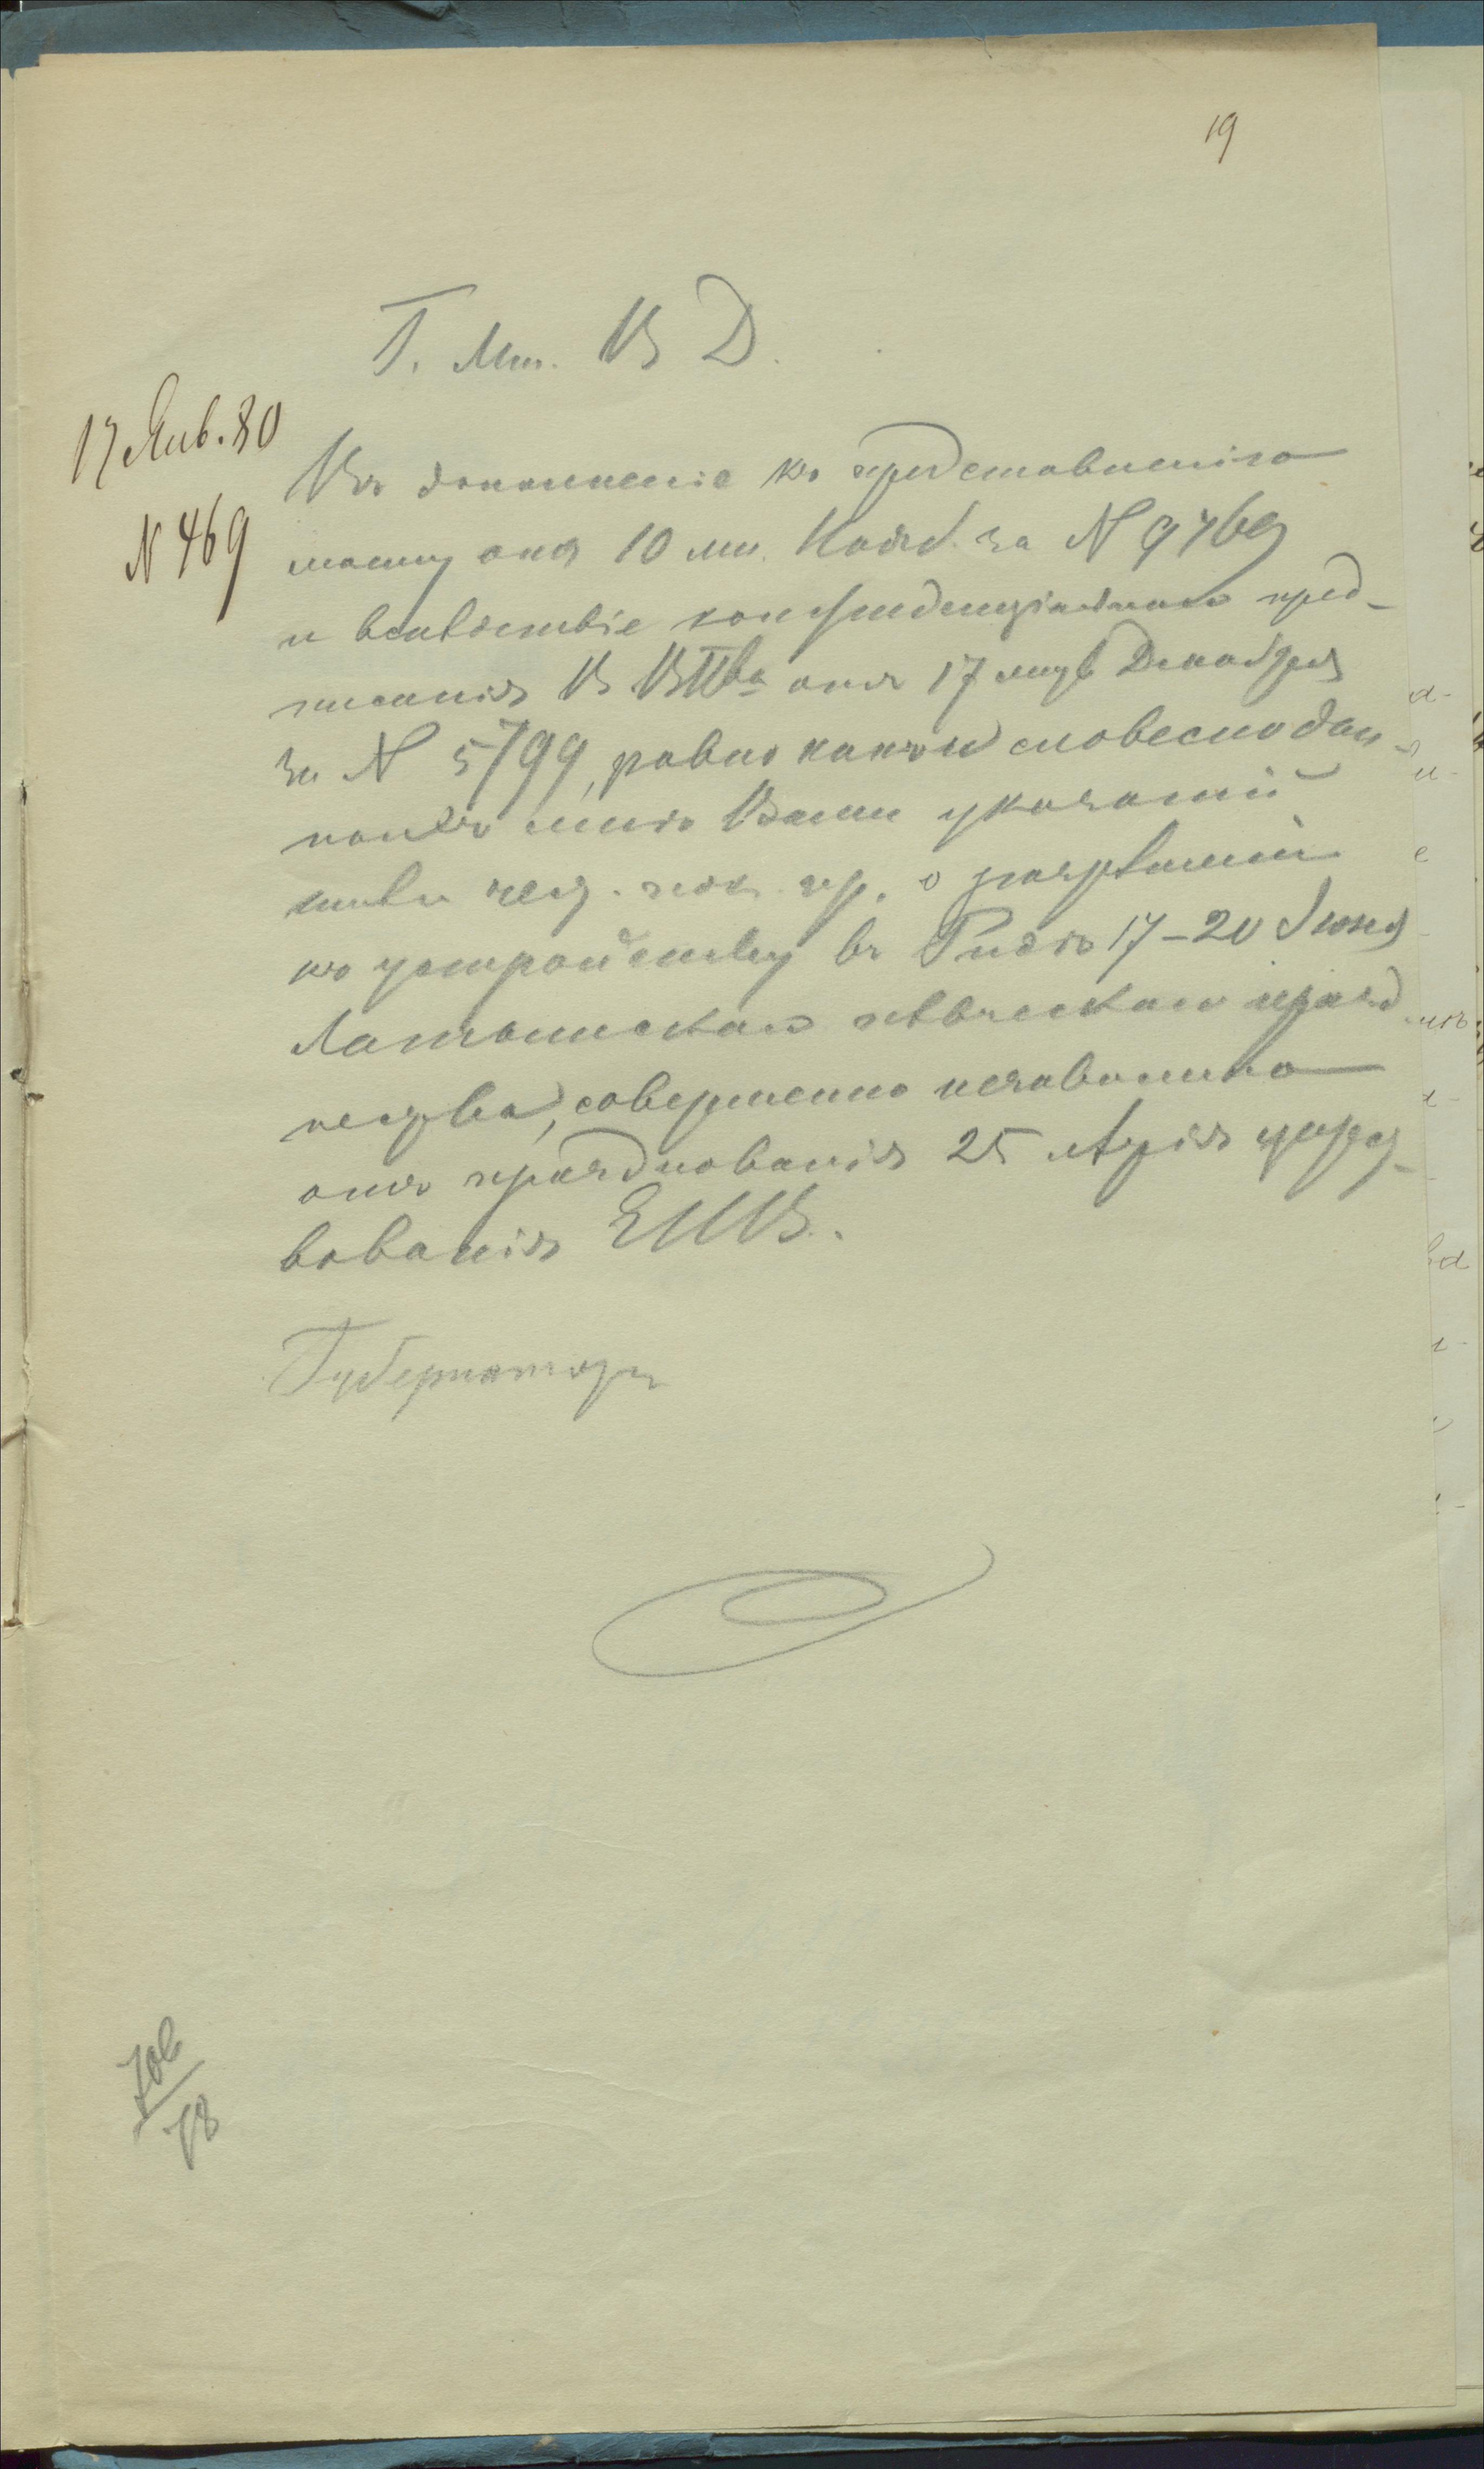 19
Г. Мин. В Д.
17 Янв. 80
№ 469
Въ дополненіе къ представленію
моему отъ 10 мин. Нояб. за № 9769
и вслѣдствіе конфиденціальнаго пред-
писанія В ВПва отъ 17 Декабря
за № 5799, равно какъ и словесно дан-
ныхъ мнѣ Вами указаній
имѣю о разрѣшеніи
къ устройству въ Ригѣ 17-20 Іюня
Латышскаго пѣвческаго празд
нества, совершенно независимо
отъ празднованія 25 лѣтія царст-
вованія ЕИВ.
Губернаторъ
706
78